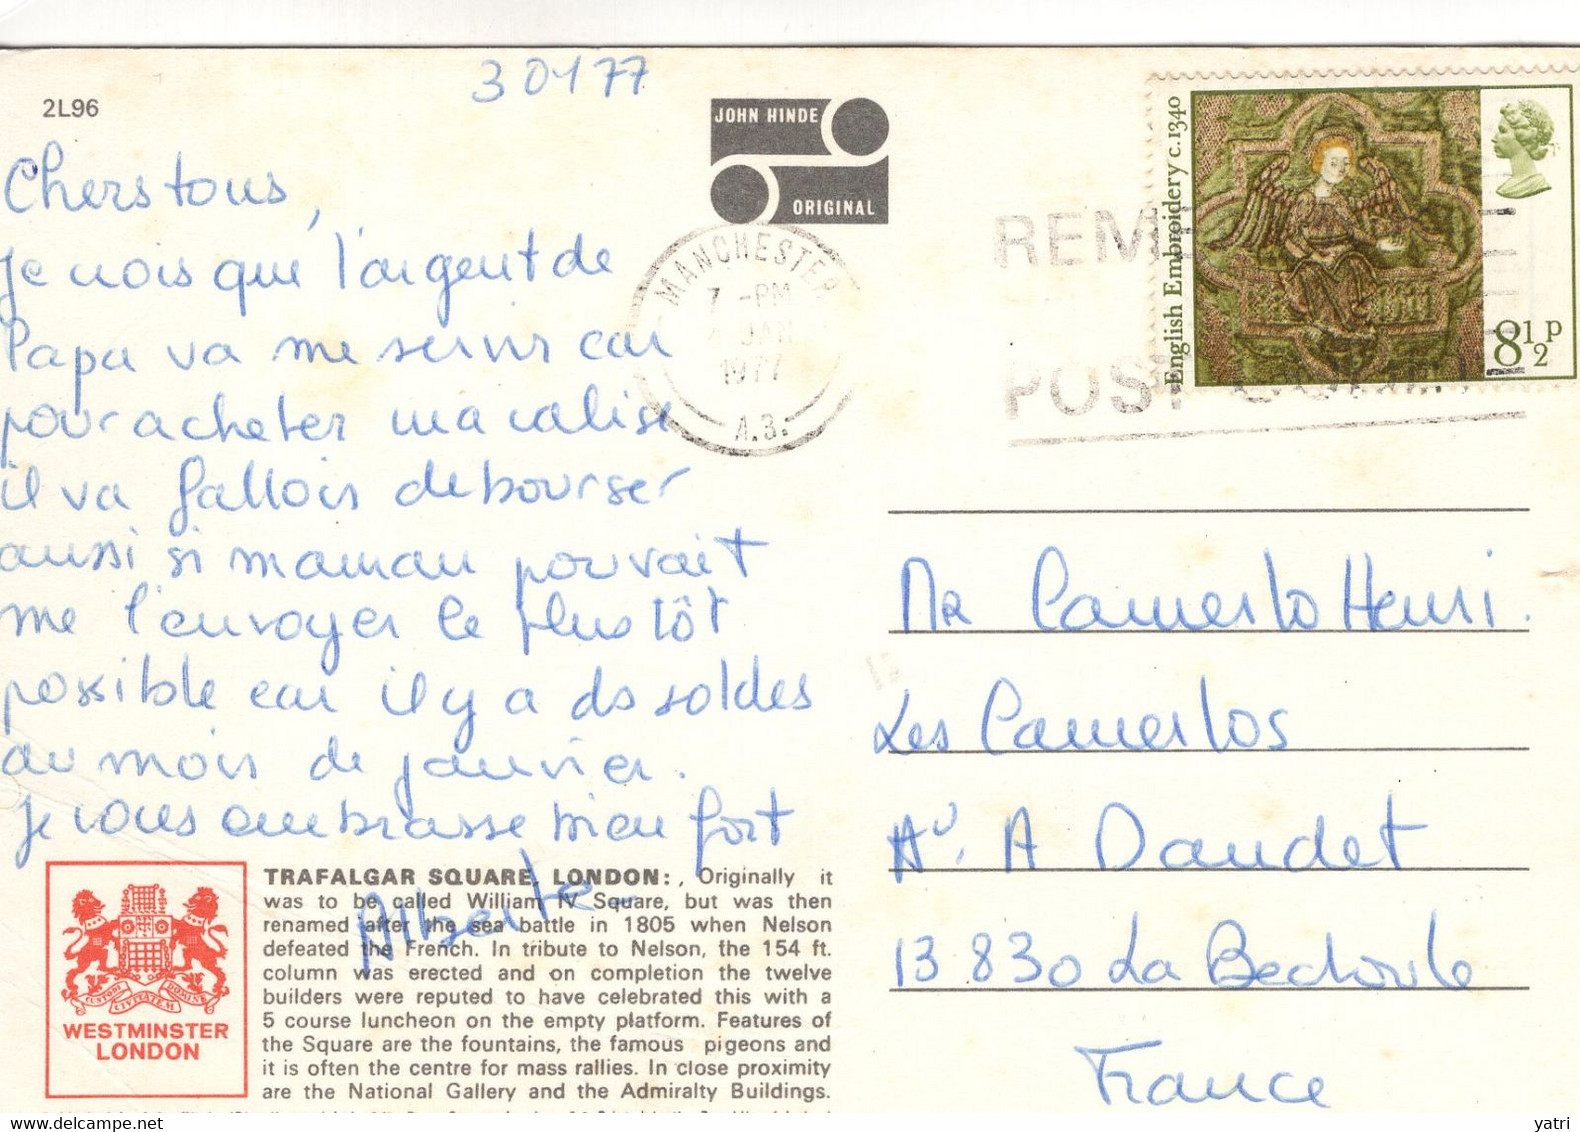 30177
2L96
JOHN HINDE
ORIGINAL
English Embroidery c.1340
8½p
MANCHESTER
7 -PM
4 JAN
1977
A.3.
REME
POST
Chers tous,
Je vois que l'argent de
Papa va me servir car
pour acheter ma valise
il va fallois debourser
aussi si maman pouvait
me l'envoyer le plus tôt
possible car il y a ds soldes
au mois de janvier.
Je vous embrasse bien fort
Alberte
Mr Camerlo Henri.
Les Camerlos
Av. A Daudet
13.830 La Bedoule
France
CUSTODI CIVITATEM DOMINE
WESTMINSTER
LONDON
TRAFALGAR SQUARE, LONDON:, Originally it
was to be called William IV Square, but was then
renamed after the sea battle in 1805 when Nelson
defeated the French. In tribute to Nelson, the 154 ft.
column was erected and on completion the twelve
builders were reputed to have celebrated this with a
5 course luncheon on the empty platform. Features of
the Square are the fountains, the famous pigeons and
it is often the centre for mass rallies. In close proximity
are the National Gallery and the Admiralty Buildings.
yatri